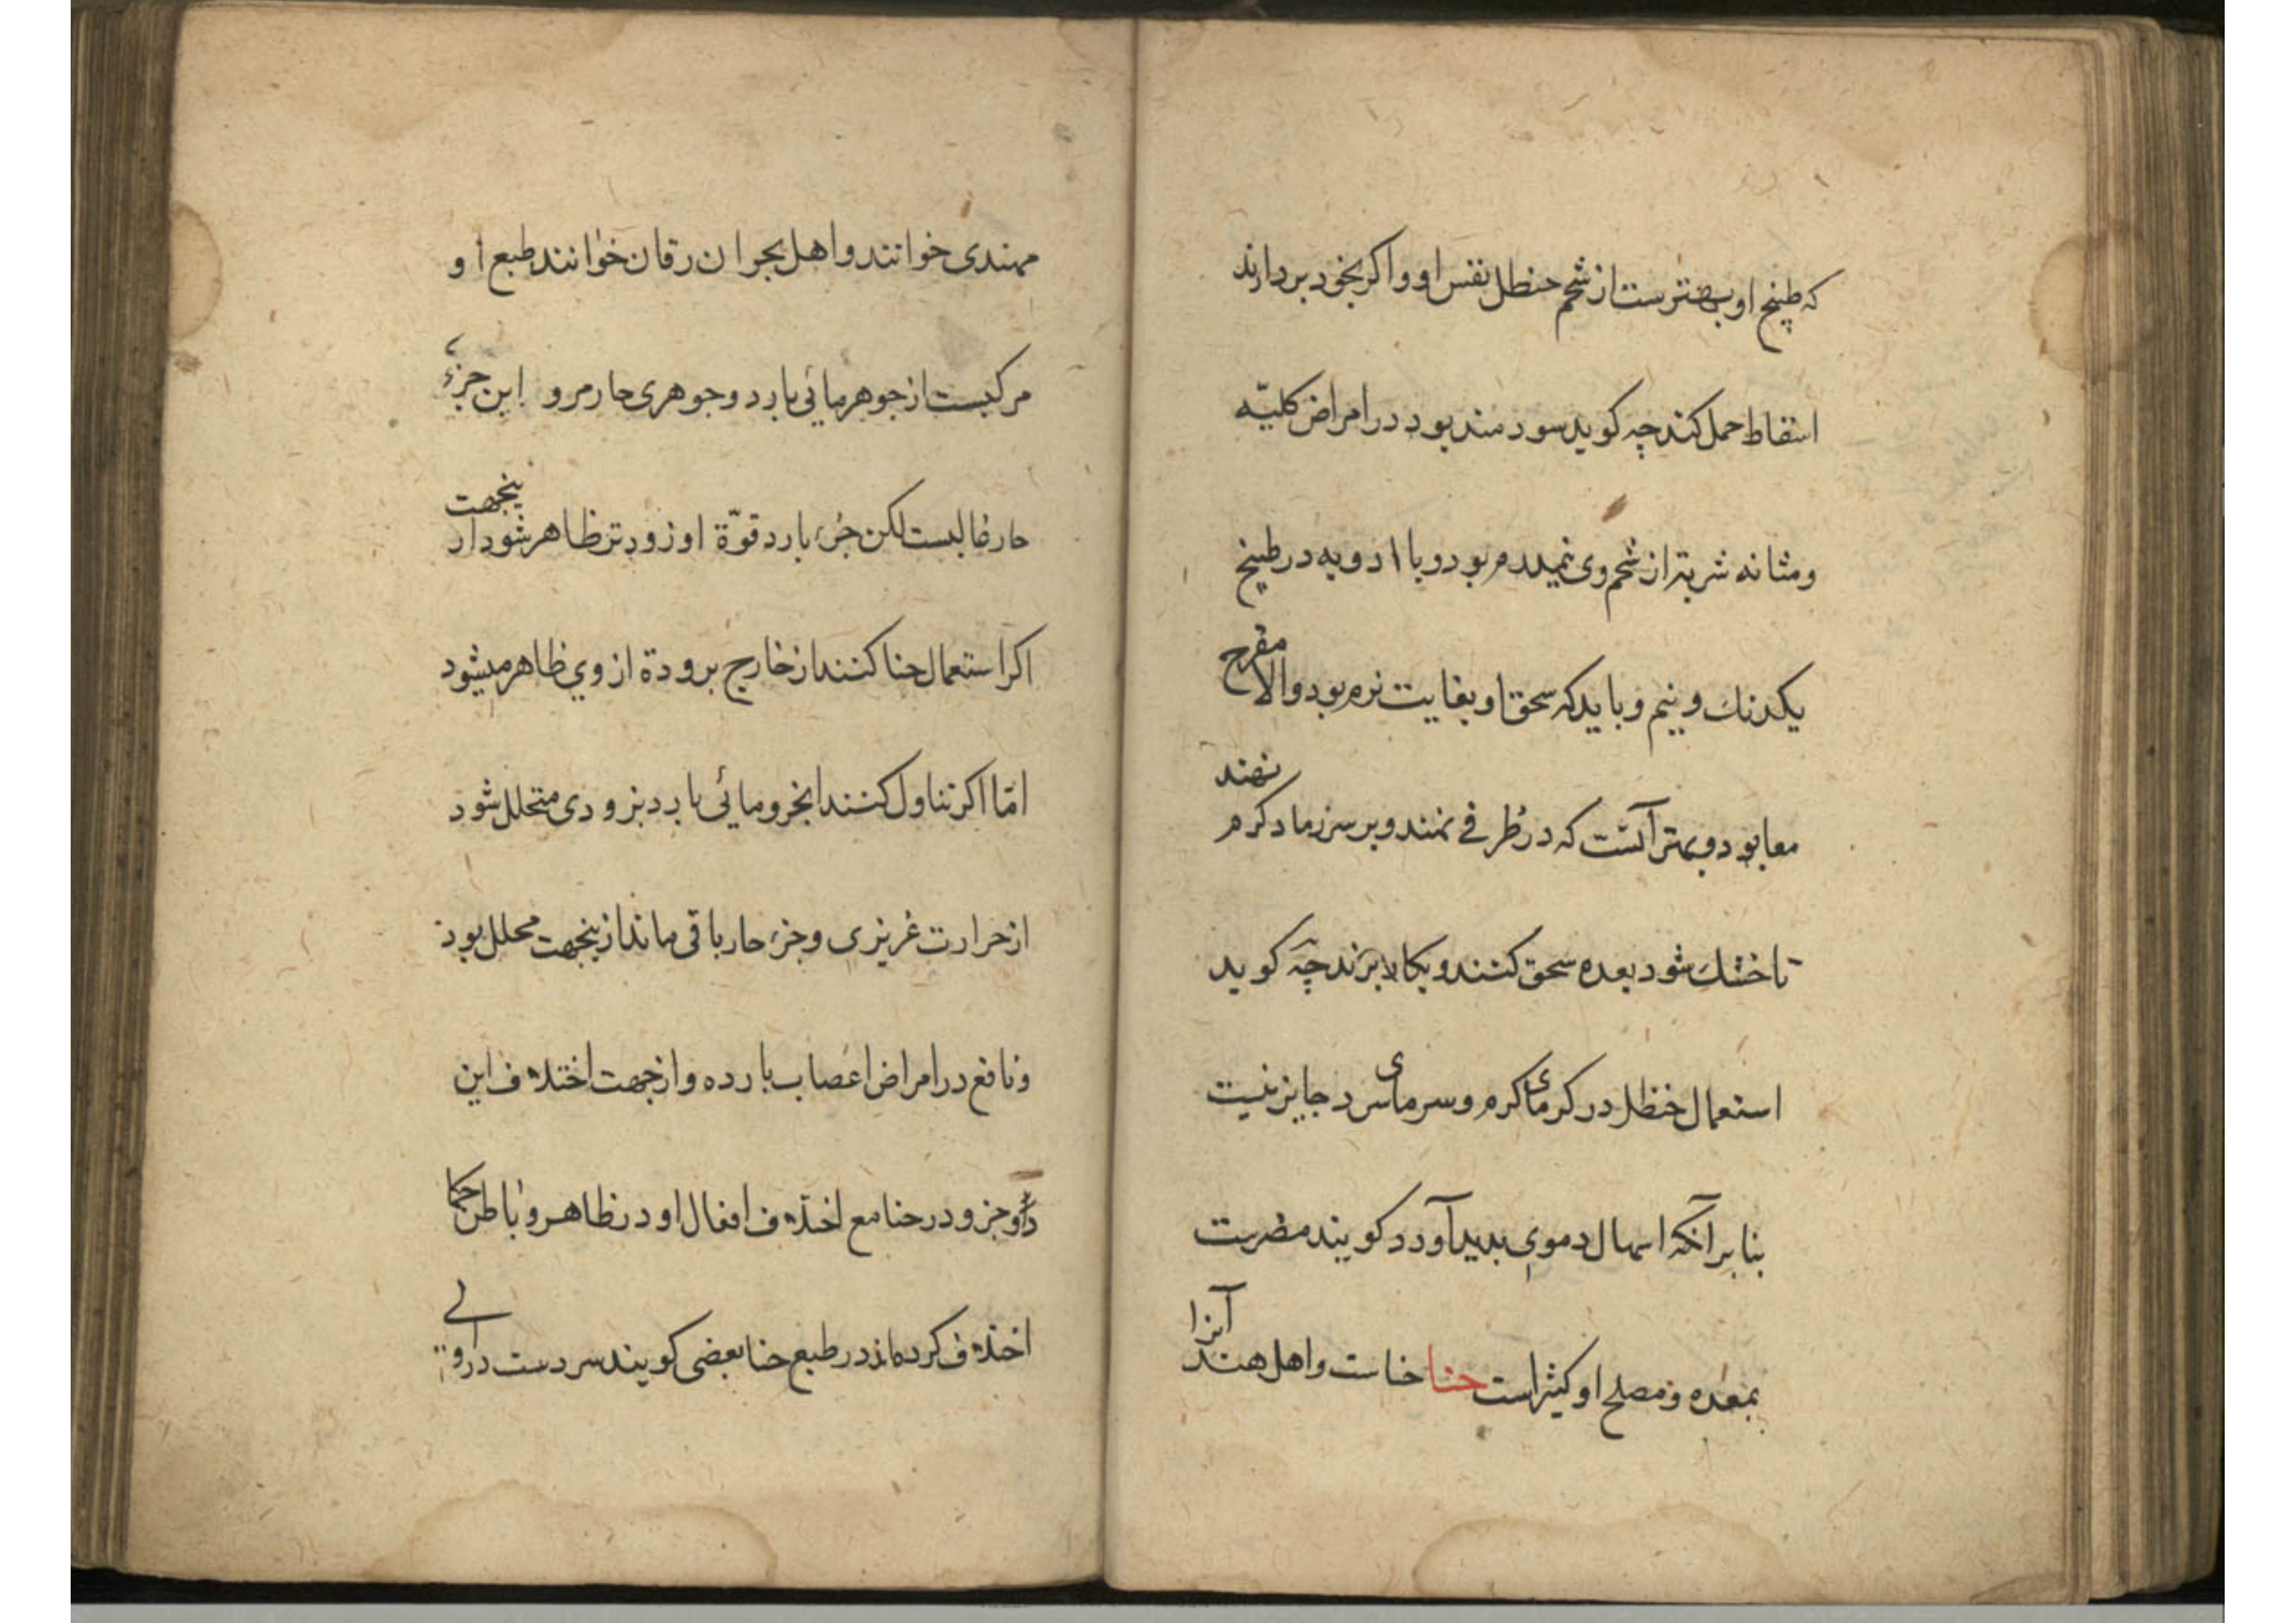 که طبیخ او بهترست از شحم حنظل نفس او و اکر بخود بردارند
اسقاط حمل کند چه کوید سودمند بود در امراض کلیّه
ومثانه شربتر از شحم وی نیمدرم بود و با ادویه در طبیخ
یکدنك و نیم و باید که سحق او بغایت نرم بود والا مقرح
معا بود و بهتر آنست که در ظرفے نهند و بر سر رماد کرم نهند
تا خشك شود بعده سحق کنند و بکار برند چه کوید
استعمال حنظل در کرمای کرم و سرمای سرد جایز نیست
بنا بر آنکه اسهال دموی بدید آورد کویند مضرست
بمعده و مصلح او کثیراست حنا حناست و اهل هند آنرا
مهندی خوانند و اهل بحر ان رقان خوانند طبع او
مرکبست از جوهر مائی بارد و جوهری حار مر و این جزء
حار غالبست لکن جزء بارد قوّة او زودتر ظاهر شود از ینجهت
اکر استعمال حنا کنند از خارج برودة از وی ظاهر میشود
امّا اکر تناول کنند ابخر و مائی بارد بزودی متحلل شود
از حرارت غریزی و جزء حار باقی ماند از ینجهت محلل بود
و نافع در امراض اعصاب بارده و از جهت اختلاف این
دو جزو در حنا مع اختلاف افعال او در ظاهر و باطن حکما
اختلاف کرده اند در طبع حنا بعضی کویند سردست در اولے